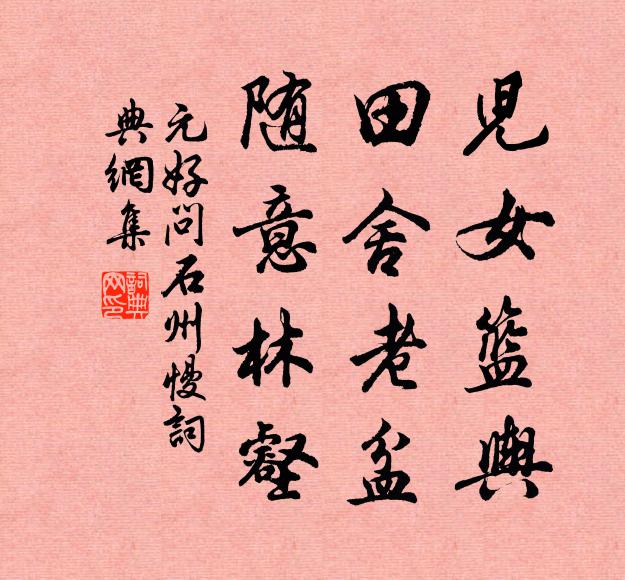 兒女籃輿
田舍老盆
随意林壑
元好问石州慢詞
典網集
詞典网印